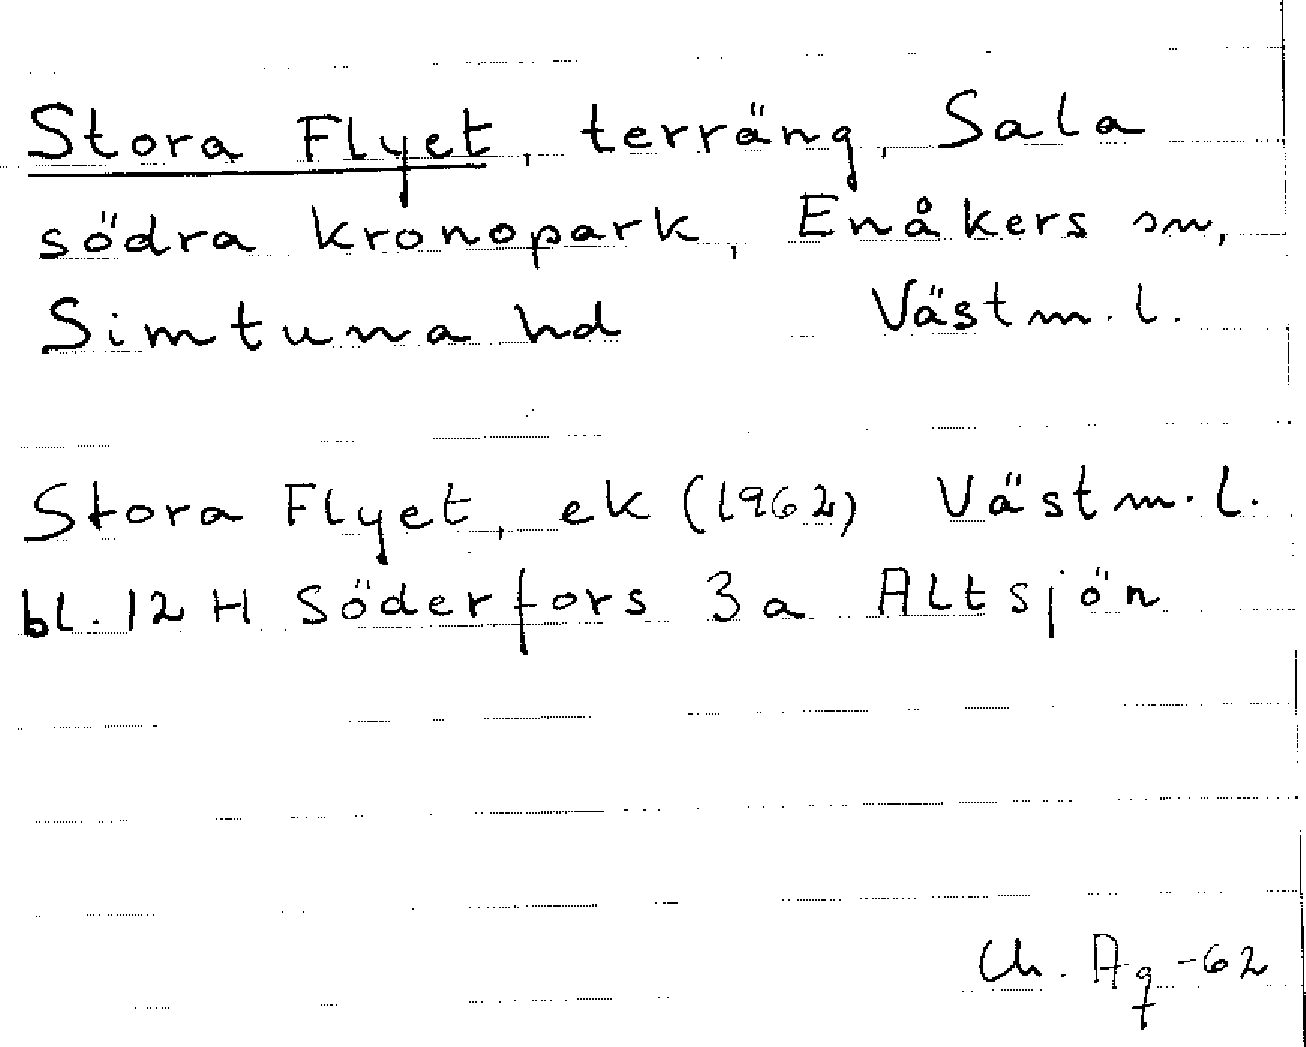 Stora Flyet, terräng, Sala
södra kronopark, Enåkers sn,
Simtuna hd Västm. l.
Stora Flyet, ek (1962) Västm. l.
bl. 12 H Söderfors 3 a Altsjön
Ch. Aq -62